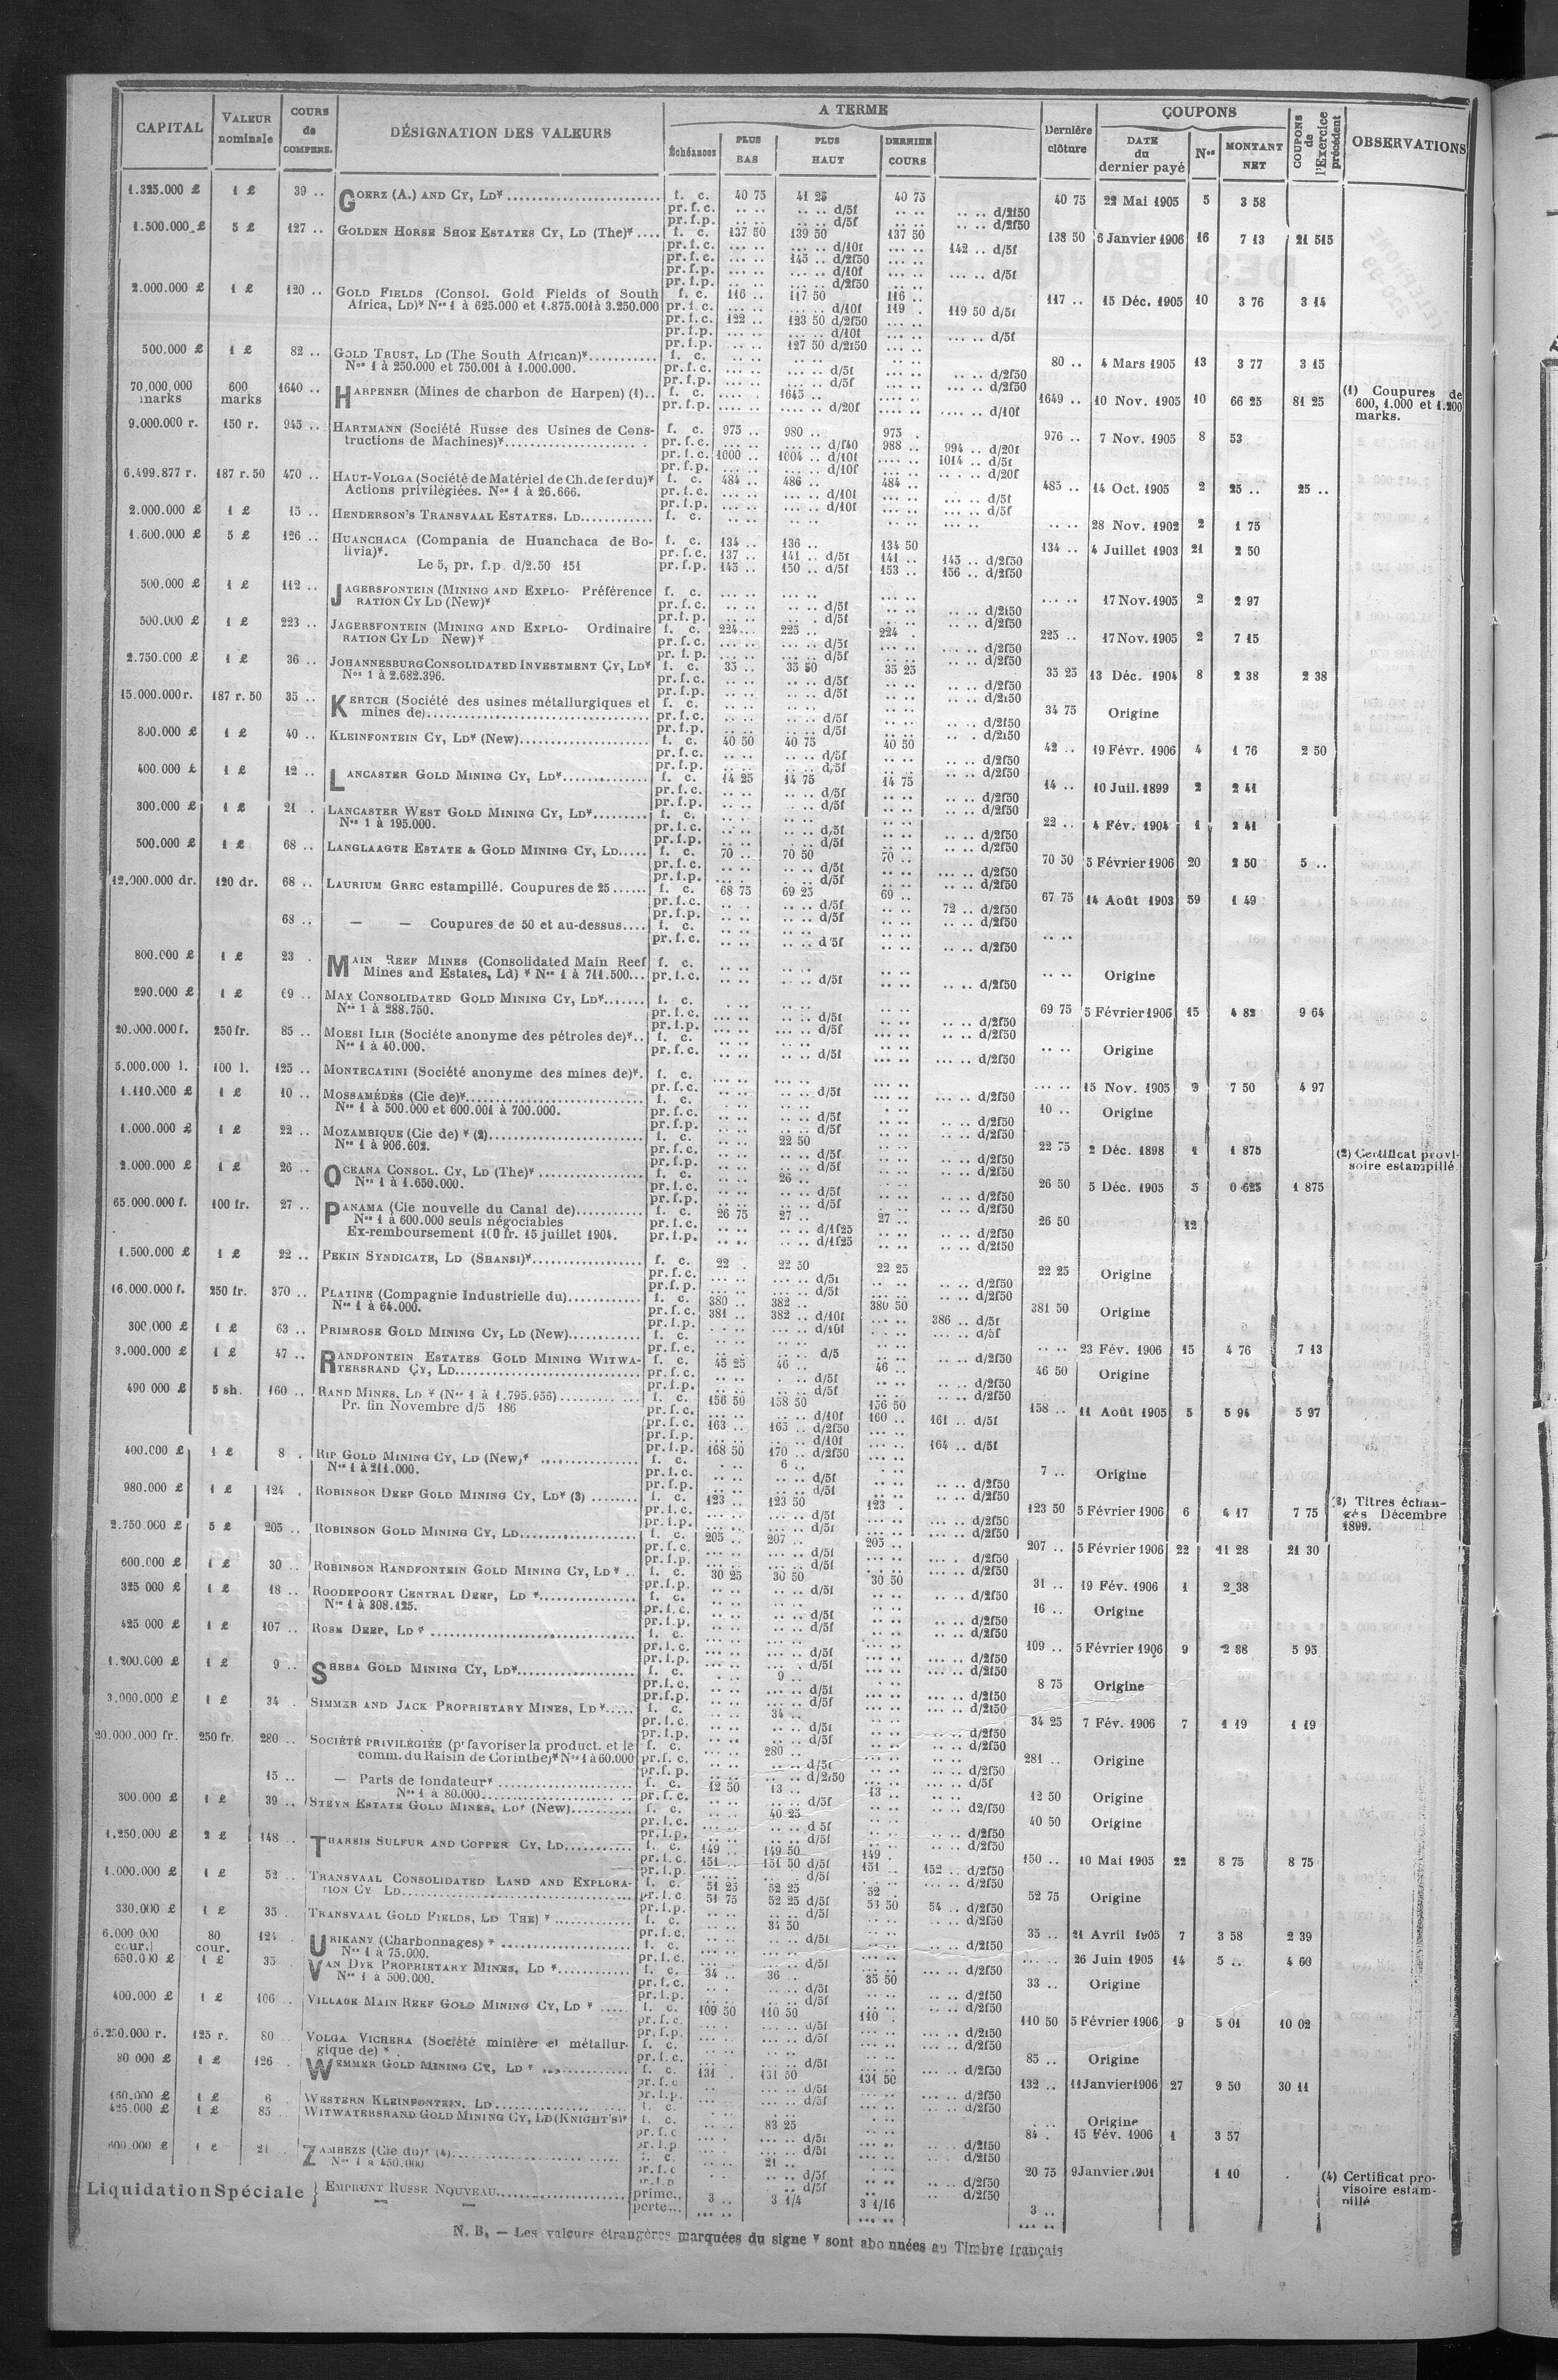 CAPITAL | VALEUR nominale | COURS de COMPENS. | DÉSIGNATION DES VALEURS | A TERME | Échéances | PLUS BAS | PLUS HAUT | DERNIER COURS | Dernière clôture | COUPONS | DATE du dernier payé | Nos | MONTANT NET | COUPONS de l'Exercice précédent | OBSERVATIONS
1.325.000 £ 1 £ 39 .. GOERZ (A.) AND CY, LD* f. c. 40 75 41 25 40 75 40 75 22 Mai 1905 5 3 58
pr. f. c. .. .. .. .. d/5f .. .. .. .. d/2f50
pr. f.p. .. .. .. .. d/5f .. .. .. .. d/2f50
1.500.000 £ 5 £ 127 .. GOLDEN HORSE SHOE ESTATES CY, LD (The)* f. c. 137 50 139 50 137 50 138 50 6 Janvier 1906 16 7 13 21 515
pr. f. c. .... .. d/10f 142 .. d/5f
pr. f. c. 145 .. d/2f50
pr. f.p. d/10f d/5f
pr. f.p. d/2f50
2.000.000 £ 1 £ 120 .. GOLD FIELDS (Consol. Gold Fields of South f. c. 116 .. 117 50 116 .. 117 .. 15 Déc. 1905 10 3 76 3 14
Africa, LD)* Nos 1 à 625.000 et 1.875.001 à 3.250.000 pr. f. c. d/10f 119 . 119 50 d/5f
pr. f. c. 122 .. 123 50 d/2f50
pr. f.p. d/10f d/5f
pr. f.p. 127 50 d/2f50
500.000 £ 1 £ 82 .. GOLD TRUST, LD (The South African)* f. c. 80 .. 4 Mars 1905 13 3 77 3 15
Nos 1 à 250.000 et 750.001 à 1.000.000. pr. f. c. d/5f d/2f50
pr. f.p. d/5f d/2f50
70.000.000 marks 600 marks 1640 .. HARPENER (Mines de charbon de Harpen) (1).. f. c. 1645 .. 1649 .. 10 Nov. 1905 10 66 25 81 25 (1) Coupures de 600, 1.000 et 1.200 marks.
pr. f.p. d/20f d/10f
9.000.000 r. 150 r. 945 .. HARTMANN (Société Russe des Usines de Cons- f. c. 975 .. 980 .. 975 . 976 .. 7 Nov. 1905 8 53
tructions de Machines)* pr. f. c. d/f40 988 .. 994 .. d/20f
pr. f. c. 1000 .. 1004 .. d/10f 1014 .. d/5f
pr. f.p. d/10f d/20f
6.499.877 r. 187 r. 50 470 .. HAUT-VOLGA (Société de Matériel de Ch. de fer du)* f. c. 484 .. 486 .. 484 .. 485 .. 14 Oct. 1905 2 25 .. 25 ..
Actions privilégiées. Nos 1 à 26.666. pr. f. c. d/10f d/5f
pr. f.p. d/10f d/5f
2.000.000 £ 1 £ 15 .. HENDERSON'S TRANSVAAL ESTATES, LD f. c. 28 Nov. 1902 2 1 75
1.600.000 £ 5 £ 126 .. HUANCHACA (Compania de Huanchaca de Bo- f. c. 134 .. 136 .. 134 50 134 .. 4 Juillet 1903 21 2 50
livia)*. pr. f. c. 137 .. 141 .. d/5f 141 .. 145 .. d/2f50
Le 5, pr. f.p. d/2.50 151 pr. f.p. 145 .. 150 .. d/5f 153 .. 156 .. d/2f50
500.000 £ 1 £ 112 .. JAGERSFONTEIN (MINING AND EXPLO- Préférence f. c. 17 Nov. 1905 2 2 97
RATION CY LD (New)* pr. f. c. d/5f d/2f50
pr. f.p. d/5f d/2f50
500.000 £ 1 £ 223 .. JAGERSFONTEIN (MINING AND EXPLO- Ordinaire f. c. 224 .. 225 .. 224 . 225 .. 17 Nov. 1905 2 7 15
RATION CY LD New)* pr. f. c. d/5f d/2f50
pr. f.p. d/5f d/2f50
2.750.000 £ 1 £ 36 .. JOHANNESBURG CONSOLIDATED INVESTMENT CY, LD* f. c. 35 .. 35 50 35 25 35 25 13 Déc. 1904 8 2 38 2 38
Nos 1 à 2.682.396. pr. f. c. d/5f d/2f50
pr. f.p. d/5f d/2f50
15.000.000 r. 187 r. 50 35 .. KERTCH (Société des usines métallurgiques et f. c. 34 75 Origine
mines de) pr. f. c. d/5f d/2f50
pr. f.p. d/5f d/2f50
800.000 £ 1 £ 40 .. KLEINFONTEIN CY, LD* (New) f. c. 40 50 40 75 40 50 42 .. 19 Févr. 1906 4 1 76 2 50
pr. f. c. d/5f d/2f50
pr. f.p. d/5f d/2f50
400.000 £ 1 £ 12 .. LANCASTER GOLD MINING CY, LD* f. c. 14 25 14 75 14 75 14 .. 10 Juil. 1899 2 2 41
pr. f. c. d/5f d/2f50
pr. f.p. d/5f d/2f50
300.000 £ 1 £ 21 . LANCASTER WEST GOLD MINING CY, LD* f. c. 22 .. 4 Fév. 1904 1 2 41
Nos 1 à 195.000. pr. f. c. d/5f d/2f50
pr. f.p. d/5f d/2f50
500.000 £ 1 £ 68 .. LANGLAAGTE ESTATE & GOLD MINING CY, LD f. c. 70 .. 70 50 70 .. 70 50 5 Février 1906 20 2 50 5 ..
pr. f. c. d/5f d/2f50
pr. f.p. d/5f d/2f50
12.000.000 dr. 120 dr. 68 .. LAURIUM GREC estampillé. Coupures de 25 f. c. 68 75 69 25 69 .. 67 75 14 Août 1903 59 1 49
pr. f. c. d/5f 72 .. d/2f50
pr. f.p. d/5f d/2f50
68 .. — — Coupures de 50 et au-dessus f. c.
pr. f. c. d 5f d/2f50
800.000 £ 1 £ 23 . MAIN REEF MINES (Consolidated Main Reef f. c. Origine
Mines and Estates, Ld) * Nos 1 à 711.500 pr. f. c. d/5f d/2f50
290.000 £ 1 £ 69 .. MAY CONSOLIDATED GOLD MINING CY, LD* f. c. 69 75 5 Février 1906 15 4 82 9 64
Nos 1 à 288.750. pr. f. c. d/5f d/2f50
pr. f.p. d/5f d/2f50
20.000.000 f. 250 fr. 85 .. MOESI ILIR (Société anonyme des pétroles de)* f. c. Origine
Nos 1 à 40.000. pr. f. c. d/5f d/2f50
5.000.000 l. 100 l. 125 .. MONTECATINI (Société anonyme des mines de)*. f. c. 15 Nov. 1905 9 7 50 4 97
pr. f. c. d/5f d/2f50
1.110.000 £ 1 £ 10 .. MOSSAMÉDÈS (Cie de)* f. c. 10 .. Origine
Nos 1 à 500.000 et 600.001 à 700.000. pr. f. c. d/5f d/2f50
pr. f.p. d/5f d/2f50
1.000.000 £ 1 £ 22 .. MOZAMBIQUE (Cie de) * (2) f. c. 22 50 22 75 2 Déc. 1898 1 1 875 (2) Certificat provi-
Nos 1 à 906.602. pr. f. c. d/5f d/2f50 soire estampillé
pr. f.p. d/5f d/2f50
2.000.000 £ 1 £ 26 .. OCEANA CONSOL. CY, LD (The)* f. c. 26 .. 26 50 5 Déc. 1905 5 0 625 1 875
Nos 1 à 1.650.000. pr. f. c. d/5f d/2f50
pr. f.p. d/5f d/2f50
65.000.000 f. 100 fr. 27 .. PANAMA (Cie nouvelle du Canal de) f. c. 26 75 27 .. 27 .. 26 50 12
Nos 1 à 600.000 seuls négociables pr. f. c. d/1f25 d/2f50
Ex-remboursement 100 fr. 15 juillet 1904. pr. f.p. d/1f25 d/2f50
1.500.000 £ 1 £ 22 .. PEKIN SYNDICATE, LD (SHANSI)* f. c. 22 . 22 50 22 25 22 25 Origine
pr. f. c. d/5f d/2f50
pr. f.p. d/5f d/2f50
16.000.000 f. 250 fr. 370 .. PLATINE (Compagnie Industrielle du) f. c. 380 .. 382 .. 380 50 381 50 Origine
Nos 1 à 64.000. pr. f. c. 381 .. 382 .. d/10f 386 .. d/5f
pr. f.p. d/10f d/5f
300.000 £ 1 £ 63 .. PRIMROSE GOLD MINING CY, LD (New) f. c. 23 Fév. 1906 15 4 76 7 13
pr. f. c. d/5 d/2f50
3.000.000 £ 1 £ 47 .. RANDFONTEIN ESTATES GOLD MINING WITWA- f. c. 45 25 46 .. 46 .. 46 50 Origine
TERSRAND CY, LD pr. f. c. d/5f d/2f50
pr. f.p. d/5f d/2f50
490.000 £ 5 sh. 160 .. RAND MINES, LD * (Nos 1 à 1.795.956) f. c. 156 50 158 50 156 50 158 .. 11 Août 1905 5 5 94 5 97
Pr. fin Novembre d/5 186 pr. f. c. d/10f 160 .. 161 .. d/5f
pr. f. c. 163 .. 165 .. d/2f50
pr. f.p. d/10f 164 .. d/5f
pr. f.p. 168 50 170 .. d/2f50
400.000 £ 1 £ 8 . RIP GOLD MINING CY, LD (New)* f. c. 6 .. 7 .. Origine
Nos 1 à 211.000. pr. f. c. d/5f d/2f50
pr. f.p. d/5f d/2f50
980.000 £ 1 £ 124 . ROBINSON DEEP GOLD MINING CY, LD* (3) f. c. 123 .. 123 50 123 . 123 50 5 Février 1906 6 4 17 7 75 (3) Titres échan-
pr. f. c. d/5f d/2f50 gés Décembre
pr. f.p. d/5f d/2f50 1899.
2.750.000 £ 5 £ 205 .. ROBINSON GOLD MINING CY, LD f. c. 205 .. 207 .. 205 .. 207 .. 5 Février 1906 22 11 28 21 30
pr. f. c. d/5f d/2f50
pr. f.p. d/5f d/2f50
600.000 £ 1 £ 30 .. ROBINSON RANDFONTEIN GOLD MINING CY, LD * f. c. 30 25 30 50 30 50 31 .. 19 Fév. 1906 1 2 38
pr. f.p. d/5f d/2f50
325 000 £ 1 £ 18 .. ROODEPOORT CENTRAL DEEP, LD * f. c. 16 .. Origine
Nos 1 à 308.125. pr. f. c. d/5f d/2f50
pr. f.p. d/5f d/2f50
425 000 £ 1 £ 107 .. ROSE DEEP, LD * f. c. 109 .. 5 Février 1906 9 2 38 5 95
pr. f. c. d/5f d/2f50
pr. f.p. d/5f d/2f50
1.200.000 £ 1 £ 9 .. SHEBA GOLD MINING CY, LD* f. c. 9 .. 8 75 Origine
pr. f. c. d/5f d/2f50
pr. f.p. d/5f d/2f50
3.000.000 £ 1 £ 34 . SIMMER AND JACK PROPRIETARY MINES, LD* f. c. 34 .. 34 25 7 Fév. 1906 7 1 19 1 19
pr. f. c. d/5f d/2f50
pr. f.p. d/5f d/2f50
20.000.000 fr. 250 fr. 280 .. SOCIÉTÉ PRIVILÉGIÉE (pr favoriser la product. et le f. c. 280 .. 281 .. Origine
comm. du Raisin de Corinthe)* Nos 1 à 60.000 pr. f. c. d/5f d/2f50
pr. f. p. d/2f50 d/5f
15 .. — Parts de fondateur* f. c. 12 50 13 .. 13 .. 12 50 Origine
Nos 1 à 80.000 pr. f. c. d/5f d2/f50
300.000 £ 1 £ 39 .. STEYN ESTATE GOLD MINES, LD* (New) f. c. 40 25 40 50 Origine
pr. f. c. d 5f d/2f50
pr. f.p. d/5f d/2f50
1.250.000 £ 2 £ 148 .. THARSIS SULFUR AND COPPER CY, LD f. c. 149 .. 149 50 149 . 150 .. 10 Mai 1905 22 8 75 8 75
pr. f. c. 151 .. 151 50 d/5f 151 .. 152 .. d/2f50
pr. f.p. d/5f d/2f50
1.000.000 £ 1 £ 52 .. TRANSVAAL CONSOLIDATED LAND AND EXPLORA- f. c. 51 25 52 25 52 . 52 75 Origine
TION CY LD pr. f. c. 51 75 52 25 d/5f 53 50 54 .. d/2f50
pr. f.p. d/5f d/2f50
330.000 £ 1 £ 35 . TRANSVAAL GOLD FIELDS, LD THE) * f. c. 34 50 35 .. 21 Avril 1905 7 3 58 2 39
pr. f. c. d/5f d/2f50
6.000 000 cour. 80 cour. 124 . URIKANY (Charbonnages) * f. c. 26 Juin 1905 14 5 .. 4 60
Nos 1 à 75.000. pr. f. c. d/5f d/2f50
650.000 £ 1 £ 35 VAN DYK PROPRIETARY MINES, LD * f. c. 34 .. 36 .. 35 50 33 .. Origine
Nos 1 à 500.000. pr. f. c. d/5f d/2f50
pr. f.p. d/5f d/2f50
400.000 £ 1 £ 106 .. VILLAGE MAIN REEF GOLD MINING CY, LD * f. c. 109 50 110 50 110 . 110 50 5 Février 1906 9 5 01 10 02
pr. f. c. d/5f d/2f50
pr. f.p. d/5f d/2f50
6.250.000 r. 125 r. 80 VOLGA VICHERA (Société minière et métallur- f. c. 85 .. Origine
gique de) * pr. f. c. d/5f d/2f50
80 000 £ 1 £ 126 WEMMER GOLD MINING CY, LD * f. c. 131 . 131 50 131 50 132 .. 11 Janvier 1906 27 9 50 30 11
pr. f. c. d/5f d/2f50
pr. f.p. d/5f d/2f50
160.000 £ 1 £ 6 WESTERN KLEINFONTEIN, LD f. c. Origine
425.000 £ 1 £ 85 WITWATERSRAND GOLD MINING CY, LD (KNIGHT'S)* f. c. 83 25 84 . 15 Fév. 1906 1 3 57
pr. f. c. d/5f d/2f50
pr. f.p. d/5f d/2f50
600.000 £ 1 £ 21 . ZAMBEZE (Cie du)* (4) f. c. 21 .. 20 75 9 Janvier 1901 1 10 (4) Certificat pro-
Nos 1 à 450.000 pr. f. c. d/5f d/2f50 visoire estam-
pr. f.p. d/5f d/2f50 pillé
Liquidation Spéciale } EMPRUNT RUSSE NOUVEAU prime.. 3 .. 3 1/4 3 1/16 3 ..
— — perte...
N. B. — Les valeurs étrangères marquées du signe * sont abonnées au Timbre français